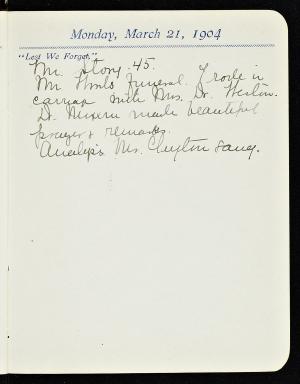 Monday, March 21, 1904
"Lest We Forget."
Mr. Story .45.
Mr funeral. I rode in
carriage with Mrs. Dr. Weston.
Dr. made beautiful
prayer & remarks.
Mrs. Clayton sang.